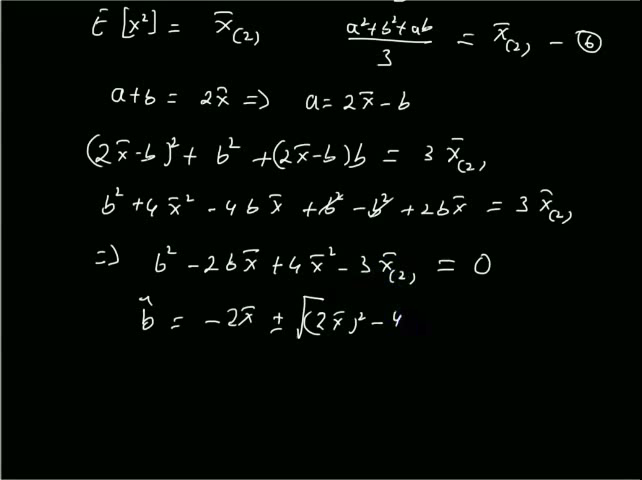 E [x²] = x̄₍₂₎    (a²+b²+ab)/3 = x̄₍₂₎ – ⑥
a+b = 2x̄ => a = 2x̄ - b
(2x̄-b)² + b² + (2x̄-b)b = 3 x̄₍₂₎
b² + 4x̄² - 4bx̄ + b² - b² + 2bx̄ = 3 x̄₍₂₎
=> b² - 2bx̄ + 4x̄² - 3x̄₍₂₎ = 0
b̂ = -2x̄ ± √(2x̄)² - 4